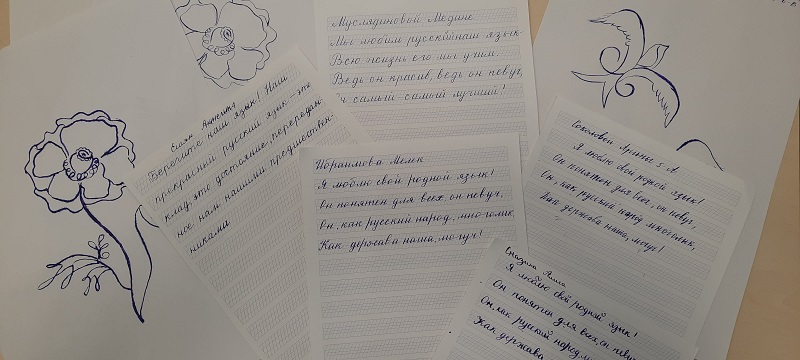 Муслядиновой Медине
Мы любим русский наш язык.
Всю жизнь его мы учим.
Ведь он красив, ведь он певуч,
самый самый лучший!
Берегите наш язык! Наш
прекрасный русский язык - это
клад, это достояние, передан-
ное нам нашими предшествен-
никами
Ибраимова Мелек
Я люблю свой родной язык!
Он понятен для всех, он певуч,
Он, как русский народ, многолик,
Как держава наша, могуч!
Соколовой 5-А
Я люблю свой родной язык!
Он понятен для всех, он певуч,
Он, как русский народ многолик,
Как держава наша, могуч!
Я люблю свой родной язык!
Он понятен для всех, он певуч
Он, как русский народ, м
Как держава